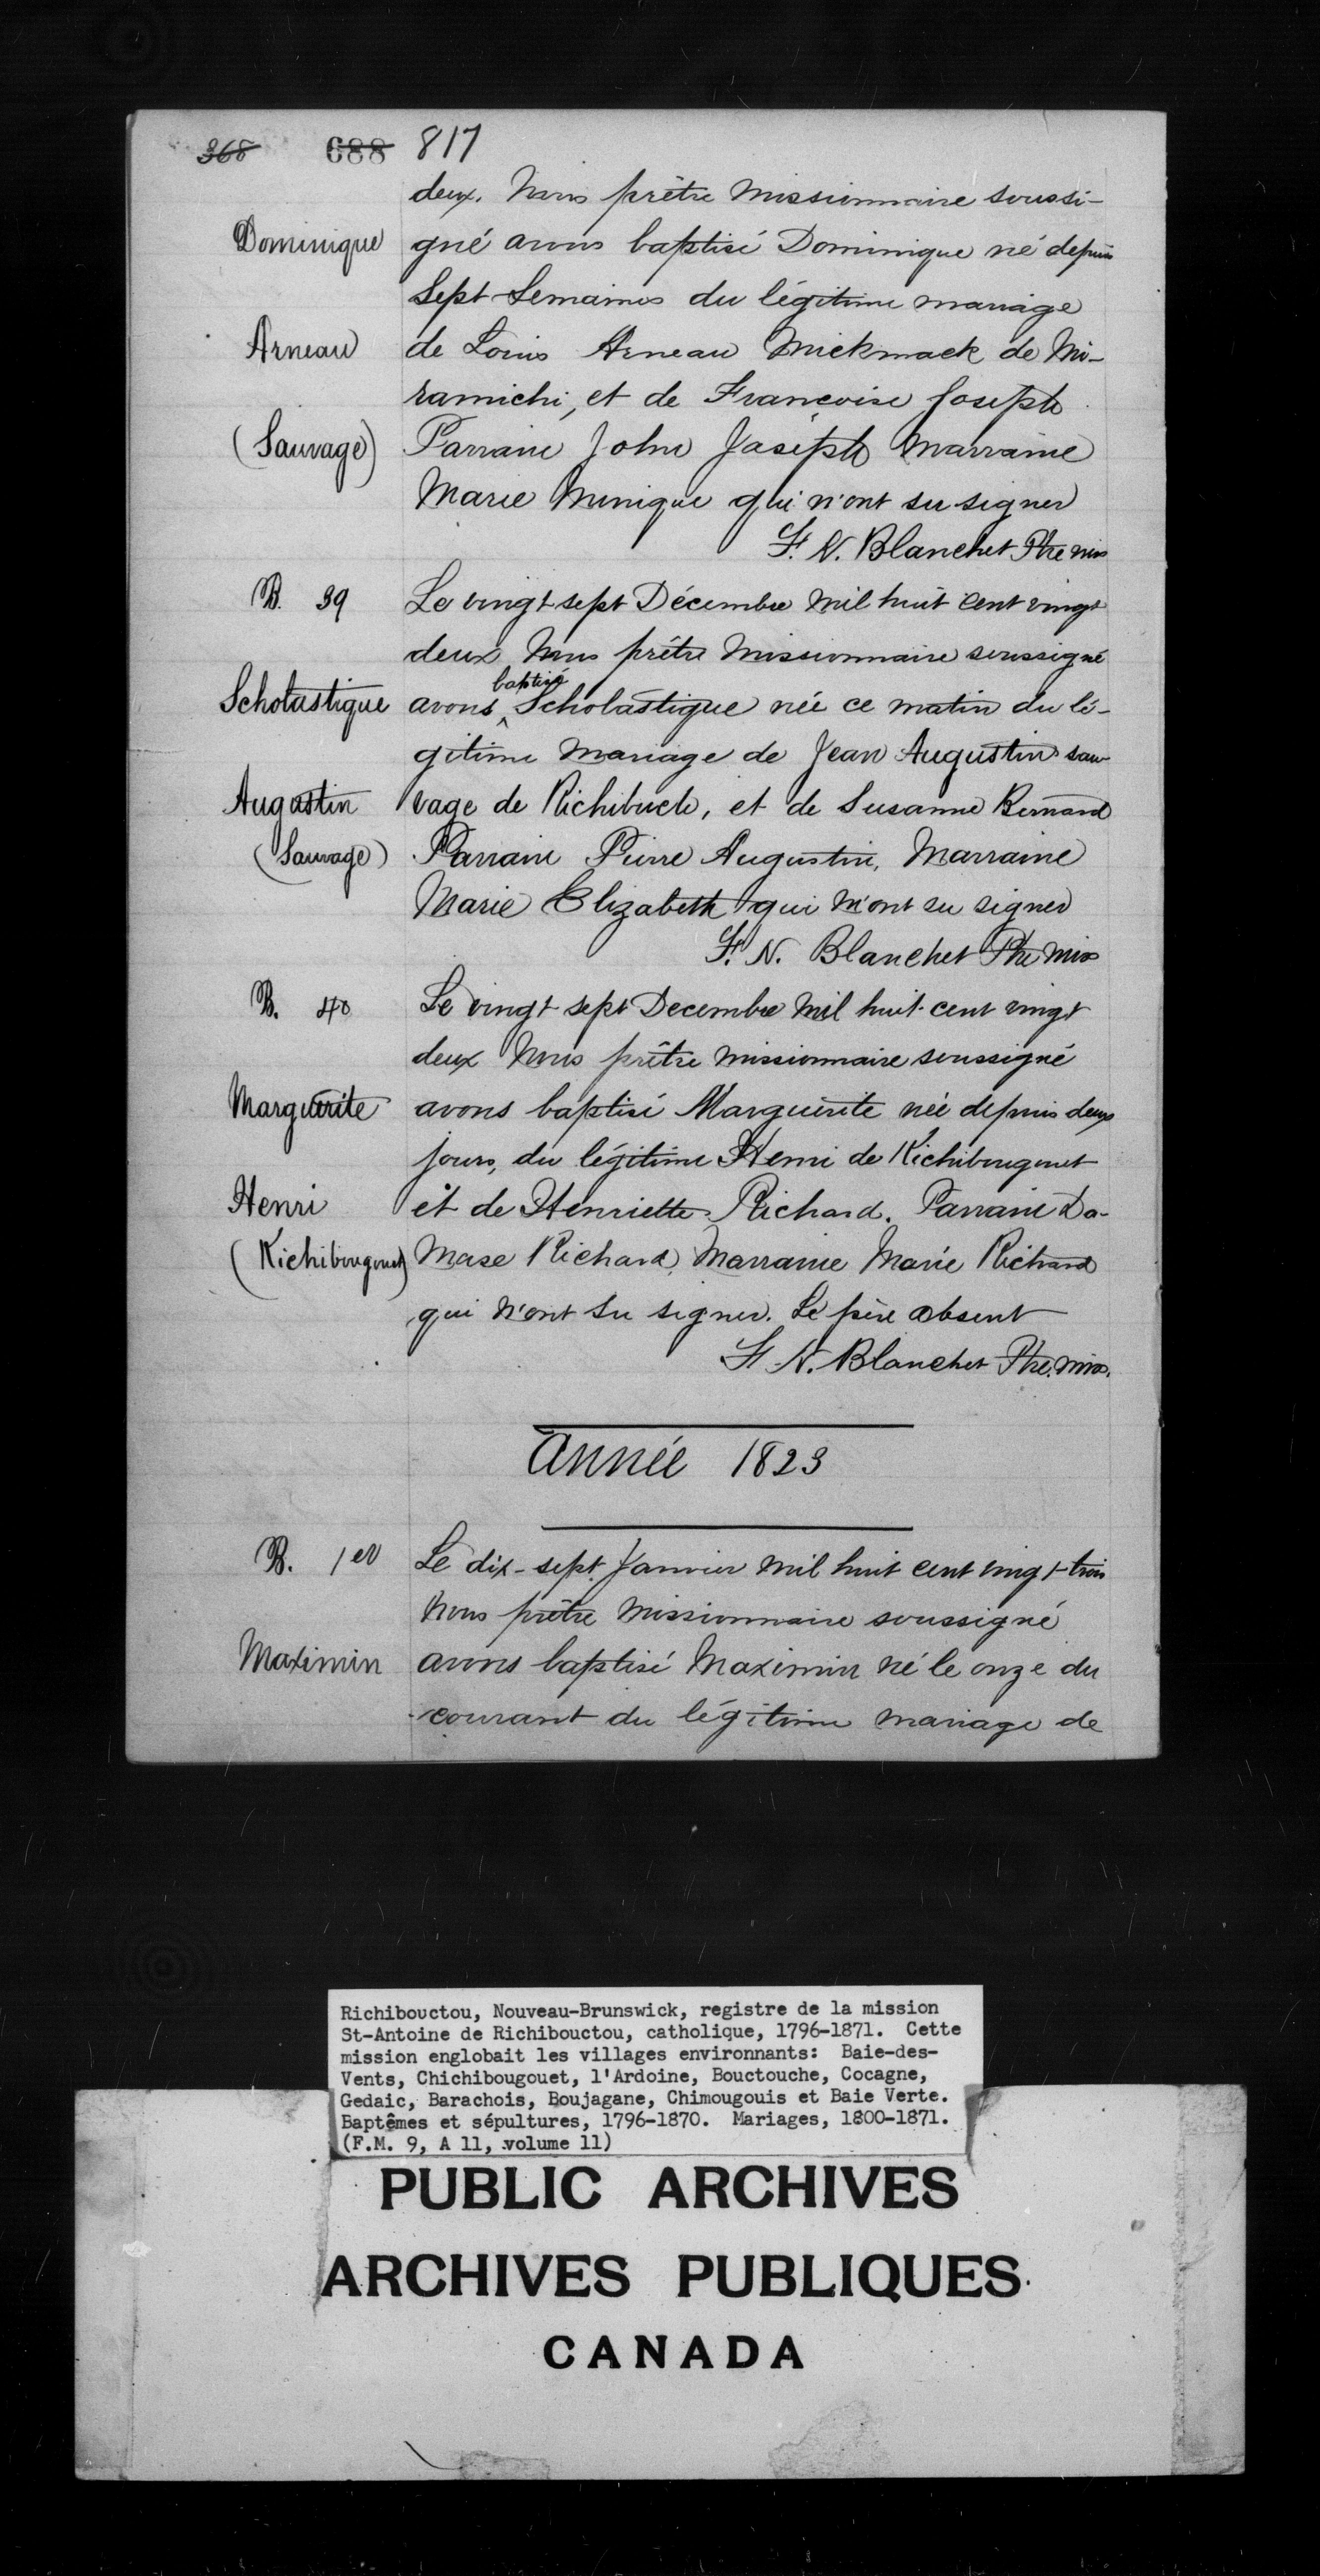 368 688 817
deux. Nous prêtre Missionnaire soussi-
Dominique gné avons baptisé Dominique né depuis
Sept Semaines du légitime mariage
Arneau de Louis Arneau Mickmack de Mi-
ramichi, et de Francoise Joseph
(Sauvage) Parrain John Joseph Marraine
Marie Munique qui n'ont su signer
F. N. Blanchet Ptre mis
B. 39 Le vingt sept Décembre mil huit cent vingt
deux Nous prêtre Missionnaire soussigné
baptisé
Scholastique avons ^ Scholastique née ce matin du lé-
gitime Mariage de Jean Augustin sau-
Augustin vage de Richibucto, et de Susanne Bernard
(Sauvage) Parrain Pierre Augustin, Marraine
Marie Elizabeth qui n'ont su signer
F. N. Blanchet Ptre Miss
B. 40 Le vingt sept Decembre Mil huit cent vingt
deux Nous prêtre missionnaire soussigné
Marguerite avons baptisé Marguerite née depuis deux
jours, du légitime Henri de Kichibougouet
Henri et de Henriette Richard. Parrain Da-
(Kichibougouet) Mase Richard, Marraine Marie Richard
qui n'ont su signer. Le père absent
F. N. Blanchet Ptre. Miss.
Année 1823
B. 1er Le dix-sept Janvier mil huit cent vingt-trois
Nous prêtre Missionnaire soussigné
Maximin avons baptisé Maximin né le onze du
courant du légitime mariage de
Richibouctou, Nouveau-Brunswick, registre de la mission
St-Antoine de Richibouctou, catholique, 1796-1871. Cette
mission englobait les villages environnants: Baie-des-
Vents, Chichibougouet, l'Ardoine, Bouctouche, Cocagne,
Gedaic, Barachois, Boujagane, Chimougouis et Baie Verte.
Baptêmes et sépultures, 1796-1870. Mariages, 1800-1871.
(F.M. 9, A 11, volume 11)
PUBLIC ARCHIVES
ARCHIVES PUBLIQUES
CANADA